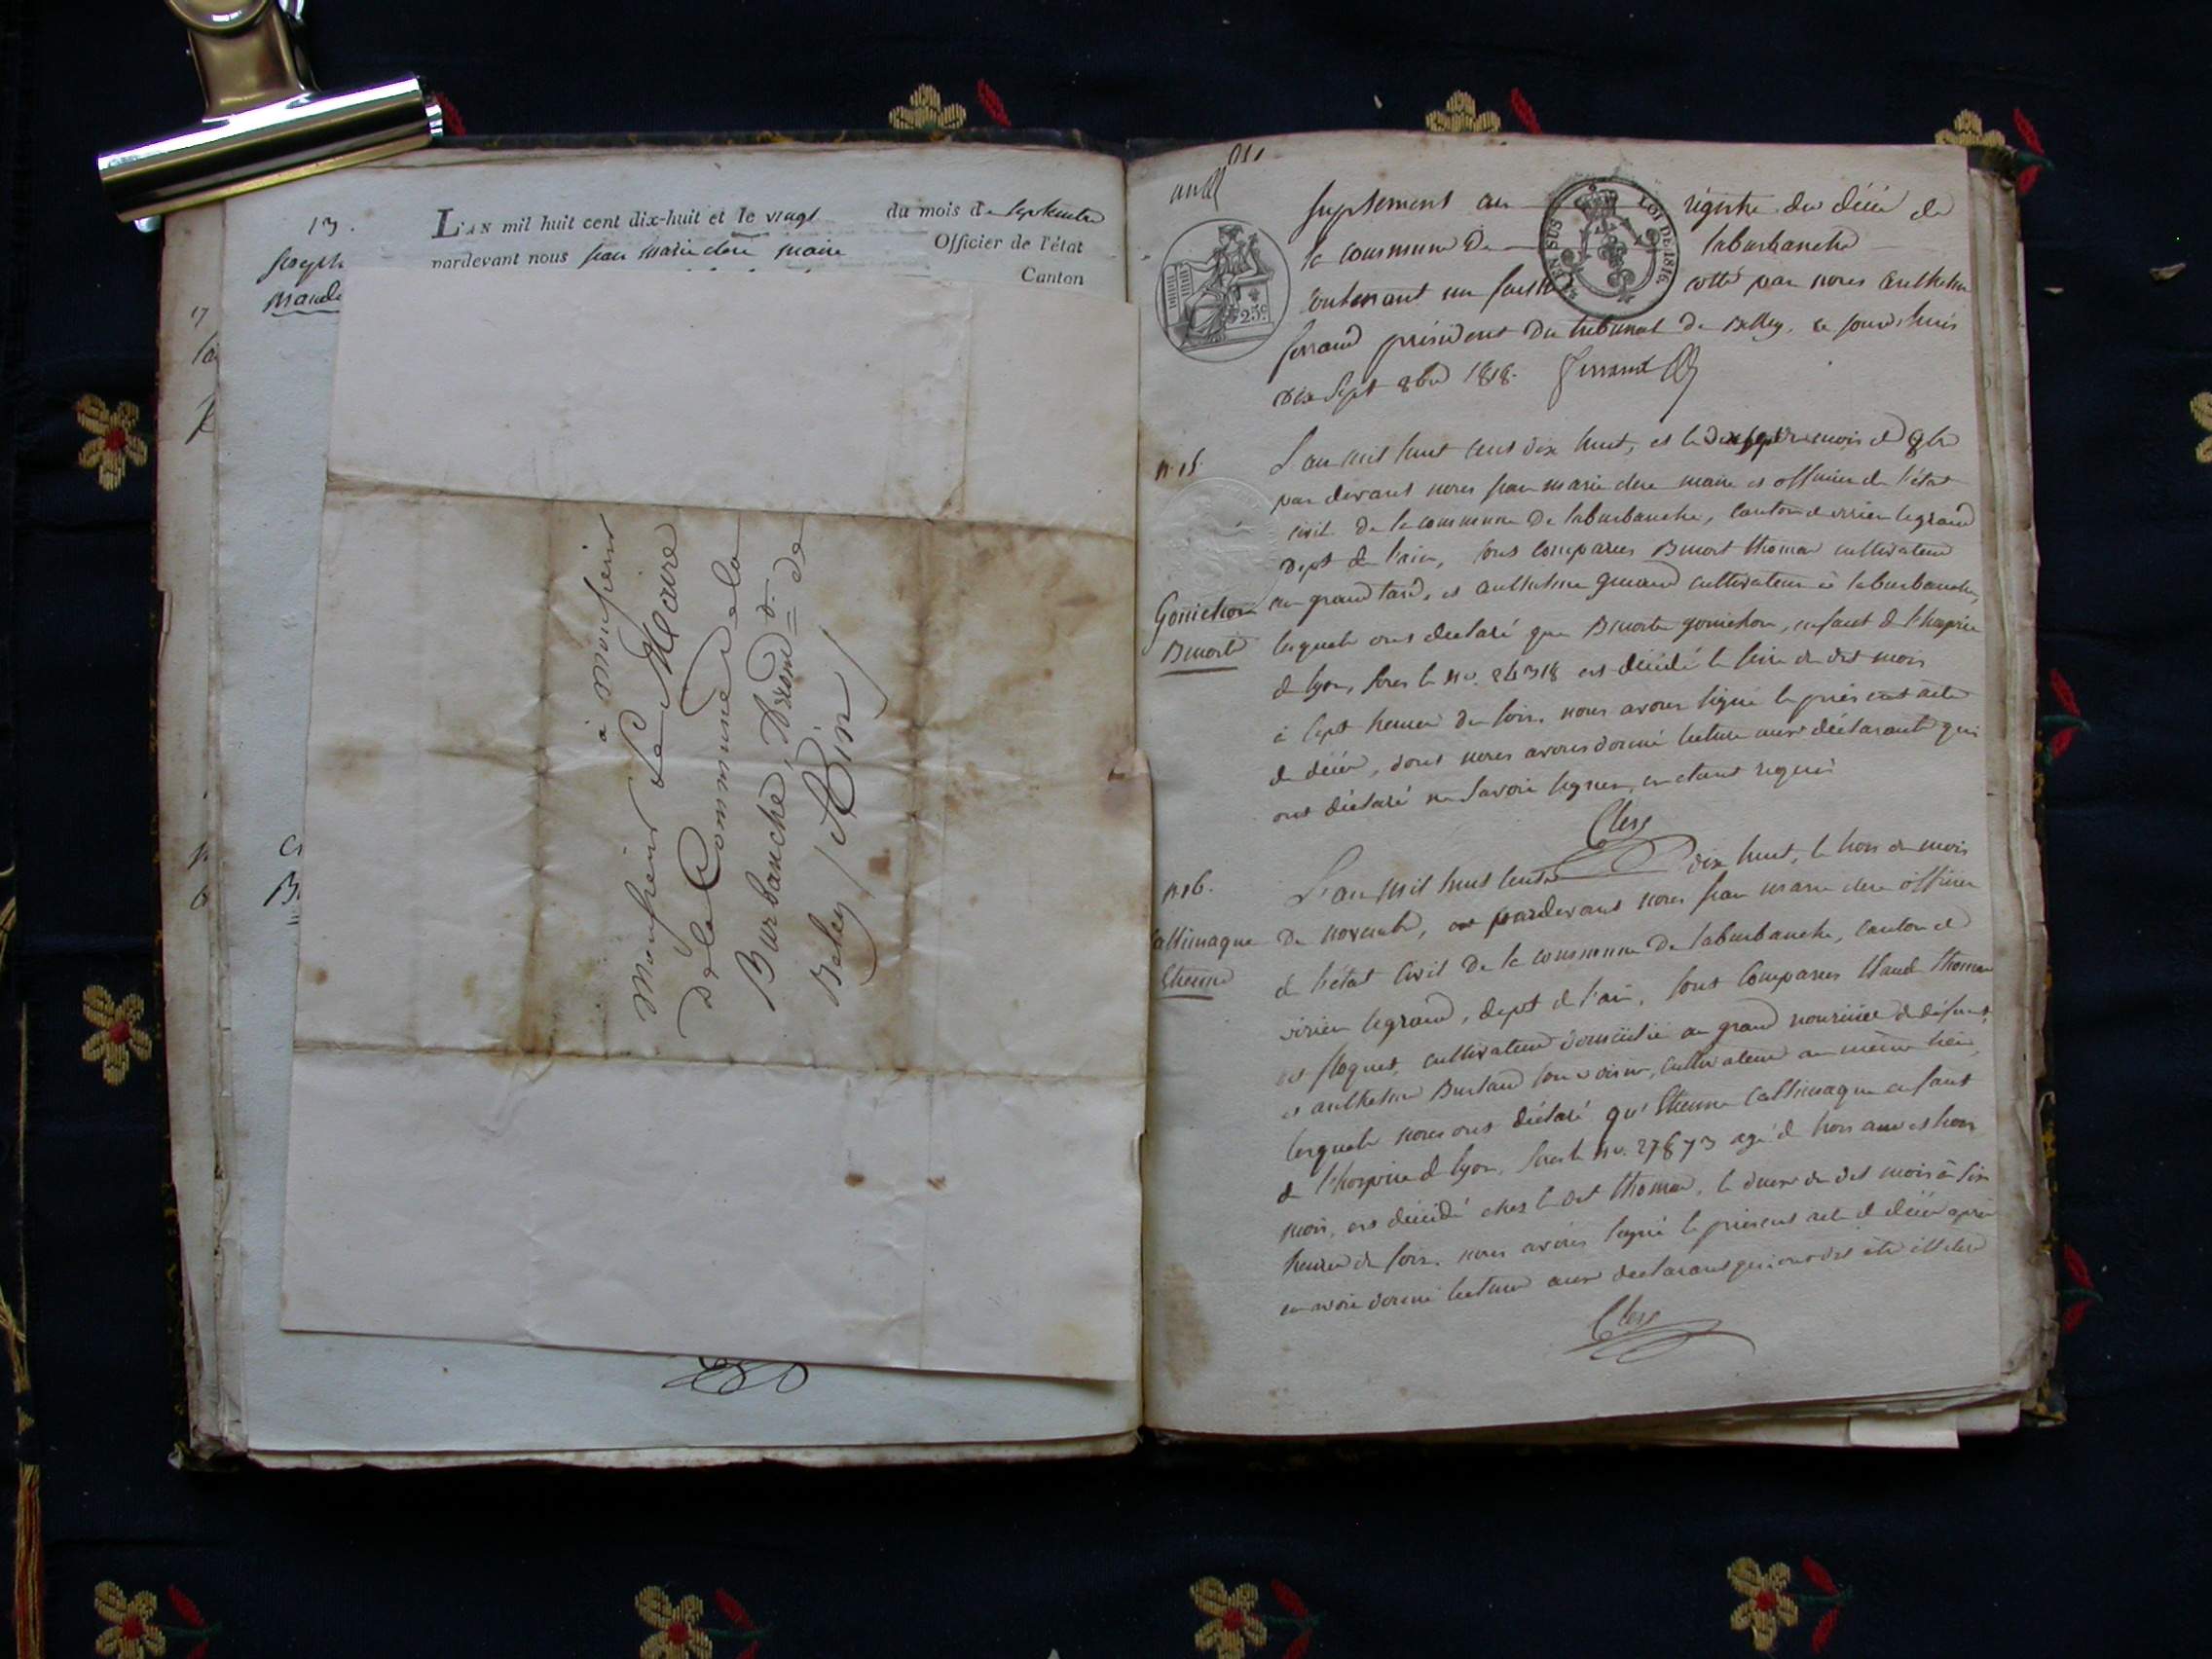 13.
Joseph
L'AN mil huit cent dix-huit et le vingt du mois de septembre
pardevant nous jean marie clerc maire Officier de l'état
Canton
à Monsieur
Monsieur Le Maire
De la Commune de la
Burbanche, Arrond.t de
Beley / Ain /
suplement au régistre des décès de
la commune de laburbanche
contenant un feuillet cotté par nous anthelme
ferrand président du tribunal de Belley, ce jourdhui
dix sept 8bre 1818. Ferrand
EN SUS LOI DE 1816.
25c
n.15.
Gonichon
Benoite
L'an mil huit cent dix huit, et le dixsept du mois d 8bre
par devant nous jean marie clerc maire et officier de l'état
civil de la commune de laburbanche, canton de virieu legrand
dept de l'ain, sont comparus Benoit thomas cultivateur
au grand tard, et anthelme guinand cultivateur à laburbanche,
lesquels ont declaré que Benoite gonichon, enfant de l'hospice
de lyon, sous le no. 24318 est décédé le seize du dit mois
à sept heures du soir. nous avons signé le présent acte
de décès, dont nous avons donné lecture aux déclarants qui
ont déclaré ne savoir signer, en etant requis
Clerc
n.16.
Callimaque
Etienne
L'an mil huit cent dix huit, le trois du mois
de novembre, pardevant nous jean marie clerc officier
de l'état civil de la commune de laburbanche, canton de
virieu legrand, dept de l'ain, sont comparus Claude thomas
dit floquet, cultivateur domicilié au grand nourricier du défunt,
et anthelme Burtaud son voisin, cultivateur au même lieu,
lesquels nous ont déclaré qu'Etienne Callimaque enfant
de l'hospice de lyon, sous le no. 27873 agé de trois ans et trois
mois, est décédé chez le dit thomas, le deux du dit mois à six
heures du soir. nous avons signé le présent acte de décès après
en avoir donné lecture aux declarants qui ont dit être illiteré
Clerc